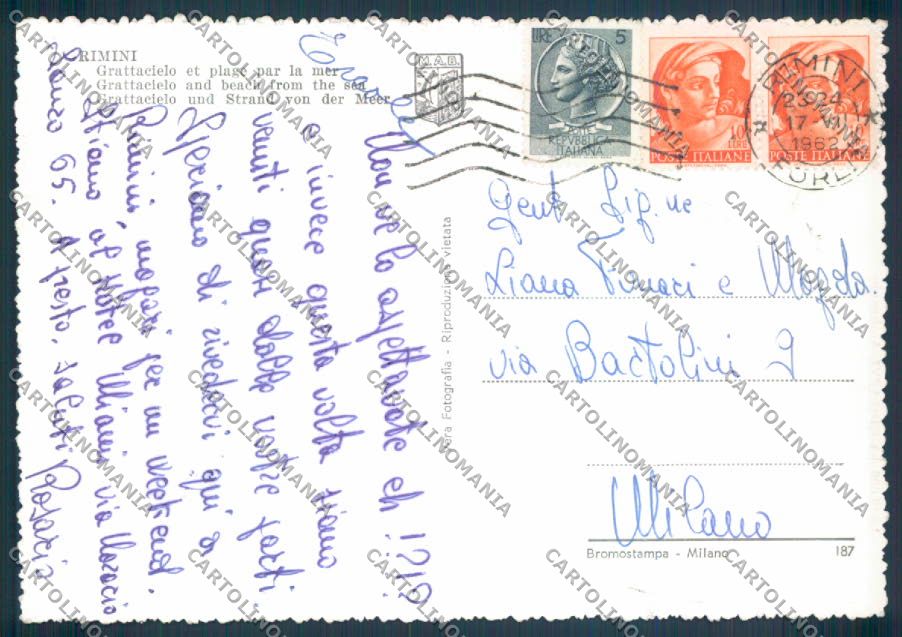 RIMINI
Grattacielo et plage par la mer
Grattacielo and beach from the sea
Grattacielo und Strand von der Meer
M.A.B.
LIRE 5
POSTE
REPVBBLICA
ITALIANA
10
LIRE
POSTE ITALIANE
POSTE ITALIANE
RIMINI
23-24
17
1962
Non ve lo aspettavate eh!?!?
e invece questa volta siamo
venuti quasi dalle vostre parti.
Speriamo di rivedervi qui a
Rimini magari per un weekend.
Stiamo all'Hotel Miami via
65. A presto, saluti Rosaria
Vera Fotografia - Riproduzione vietata
Gent. Sig.ne
Liana e Magda
via Bartolini 9
Milano
Bromostampa - Milano
187
CARTOLINOMANIA